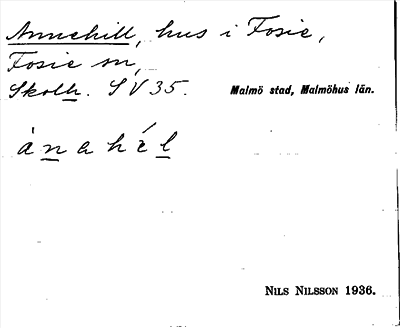 Annehill, hus i Fosie,
Fosie sn,
Skolh. SV 35.
Malmö stad, Malmöhus län.
ánahél
NILS NILSSON 1936.